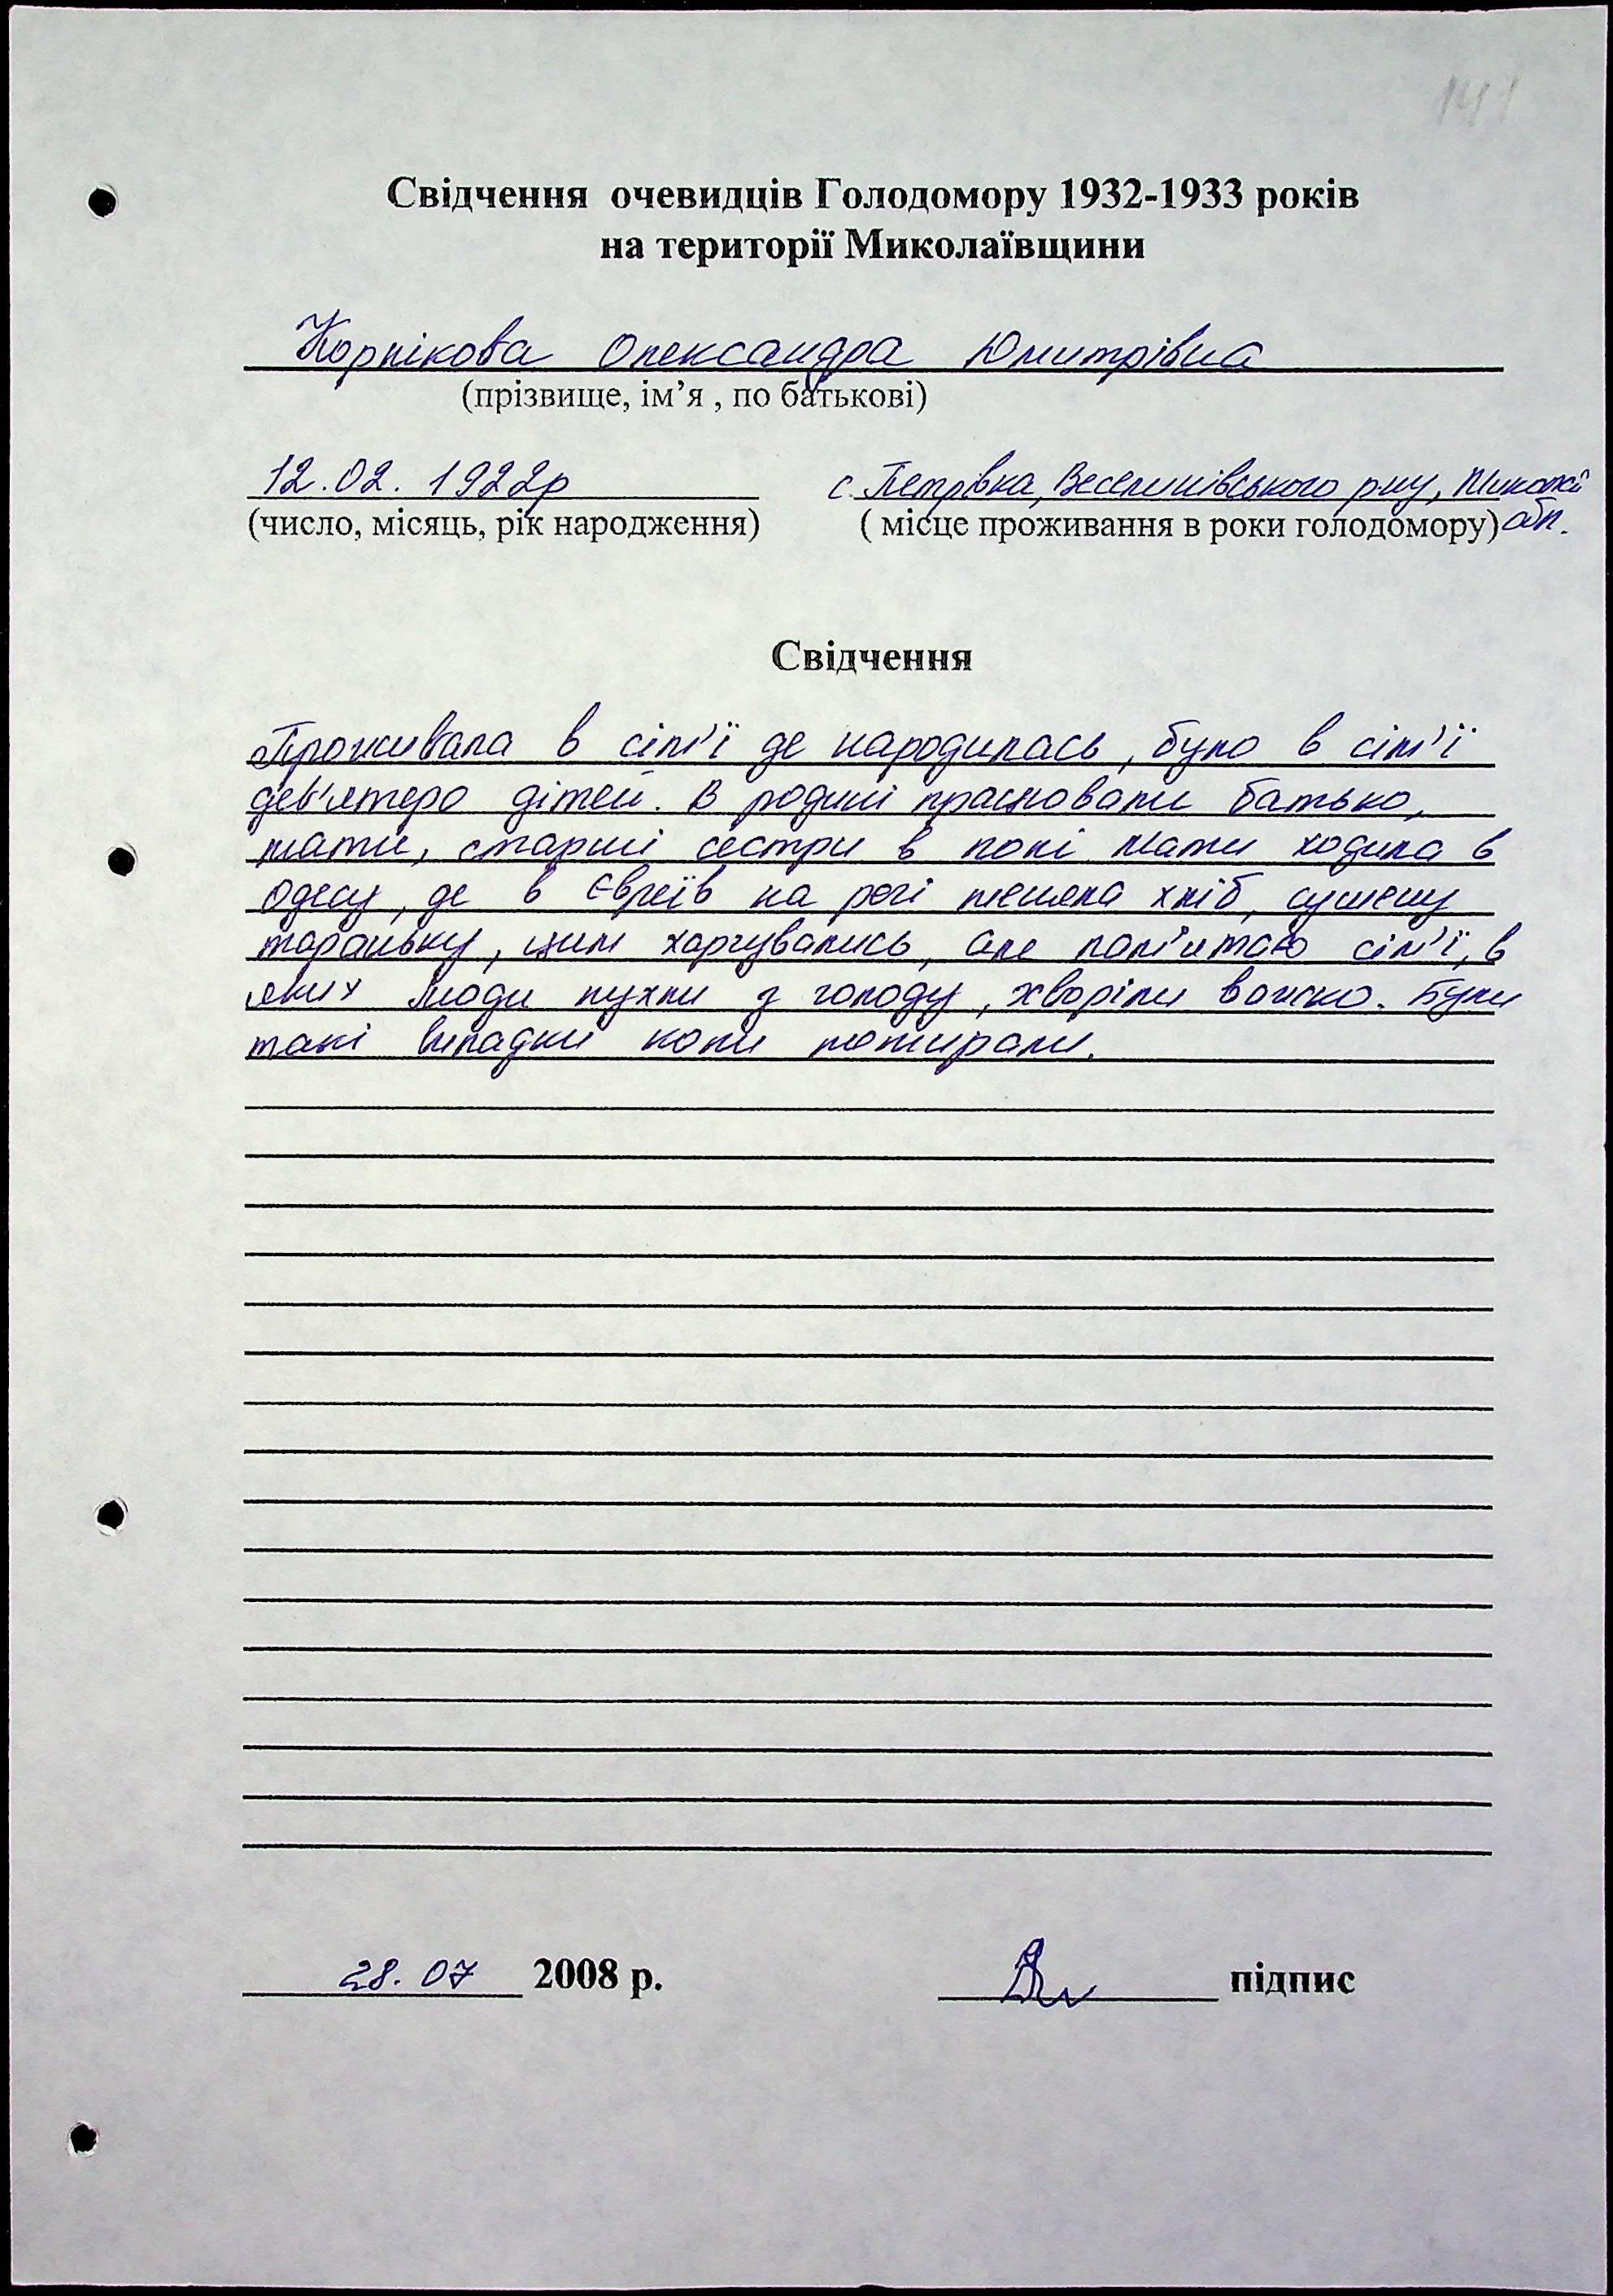 141
Свідчення очевидців Голодомору 1932-1933 років
на території Миколаївщини
Корнікова Олександра Дмитрівна
(прізвище, ім’я , по батькові)
12.02. 1922р с. Петрівка, Веселинівського р-ну, Микол.
(число, місяць, рік народження) ( місце проживання в роки голодомору) обл.
Свідчення
Проживала в сім'ї де народилась, було в сім'ї
дев'ятеро дітей. В родині працювали батько,
мати, старші сестри в полі. Мати ходила в
Одесу, де в Євреїв на речі меняла хліб, сушену
тараньку, цим харчувались, але пам'ятаю сім'ї, в
яких люди пухли з голоду, хворіли важко. Були
такі випадки коли помирали.
28.07 2008 р. підпис